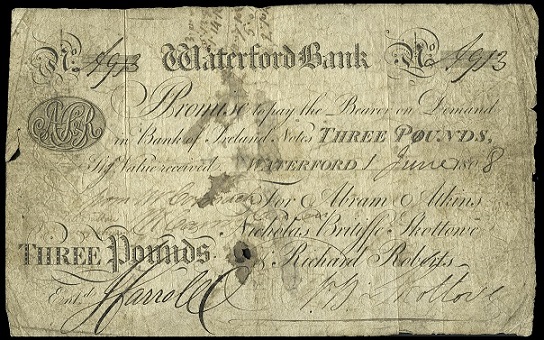 No. 1913 Waterford Bank No. 1913
I Promise to pay the Bearer on Demand
in Bank of Ireland Notes THREE POUNDS,
Value received WATERFORD 1 June 1808
For Abram Atkins
Nicholas Britiffe Skottowe
THREE Pounds & Richard Roberts
Entd. J Carroll N B Skottowe